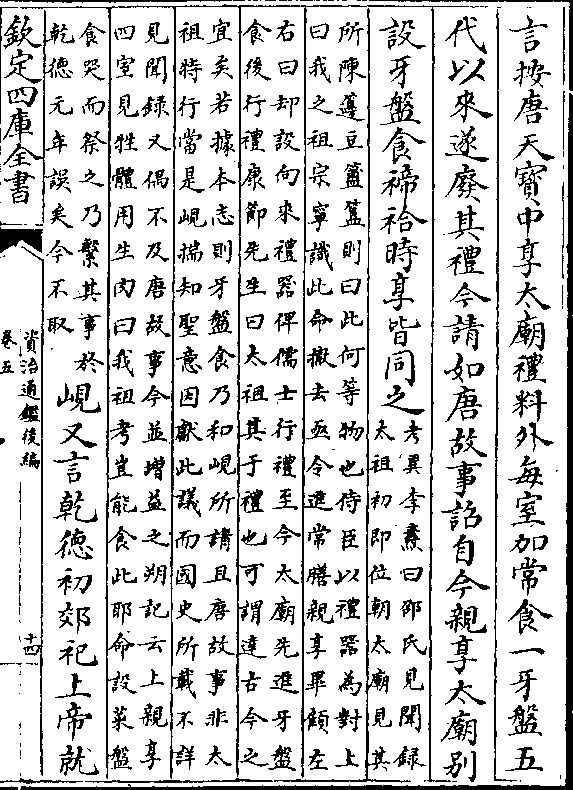 言按唐天寶中享太廟禮料外每室加常食一牙盤五
代以來遂廢其禮今請如唐故事詔自今親享太廟别
設牙盤食禘祫時享皆同之
考異李燾曰邵氏見聞録
太祖初即位朝太廟見其
所陳籩豆簠簋則曰此何等物也侍臣以禮器為對上
曰我之祖宗寧識此命撤去亟令進常膳親享畢顧左
右曰却設向來禮器俾儒士行禮至今太廟先進牙盤
食後行禮康節先生曰太祖其于禮也可謂達古今之
宜矣若據本志則牙盤食乃和峴所請且唐故事非太
祖特行當是峴揣知聖意因獻此議而國史所載不詳
見聞録又偶不及唐故事今並增益之朔記云上親享
四室見牲體用生肉曰我祖考豈能食此耶命設菜盤
食哭而祭之乃繫其事於
乾德元年誤矣今不取
峴又言乾德初郊祀上帝就
欽定四庫全書
資治通鑑後編
卷五
十四